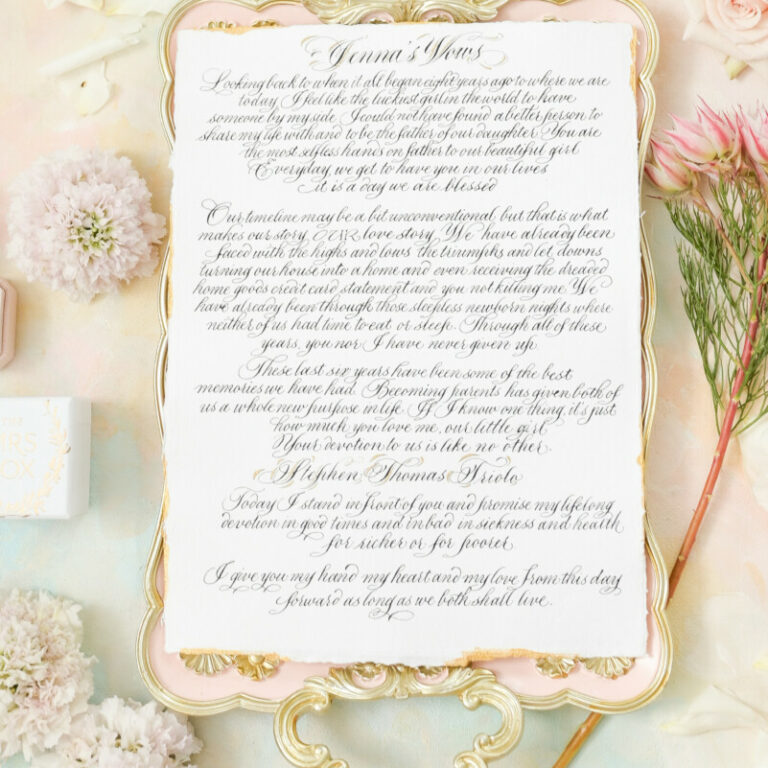 Jenna's Vows
Looking back to when it all began eight years ago to where we are
today I feel like the luckiest girl in the world to have
someone by my side. I could not have found a better person to
share my life with and to be the father of our daughter. You are
the most selfless hands on father to our beautiful girl.
Everyday, we get to have you in our lives
it is a day we are blessed
Our timeline may be a bit unconventional, but that is what
makes our story, OUR love story. We have already been
faced with the highs and lows the triumphs and let downs
turning our house into a home and even receiving the dreaded
home goods credit card statement and you not killing me. We
have already been through those sleepless newborn nights where
neither of us had time to eat or sleep. Through all of these
years, you nor I have never given up.
These last six years have been some of the best
memories we have had. Becoming parents has given both of
us a whole new purpose in life. If I know one thing, it's just
how much you love me, our little girl.
Your devotion to us is like no other.
Stephen Thomas Triolo
Today I stand in front of you and promise my lifelong
devotion in good times and in bad in sickness and health
for richer or for poorer.
I give you my hand my heart and my love from this day
forward as long as we both shall live.